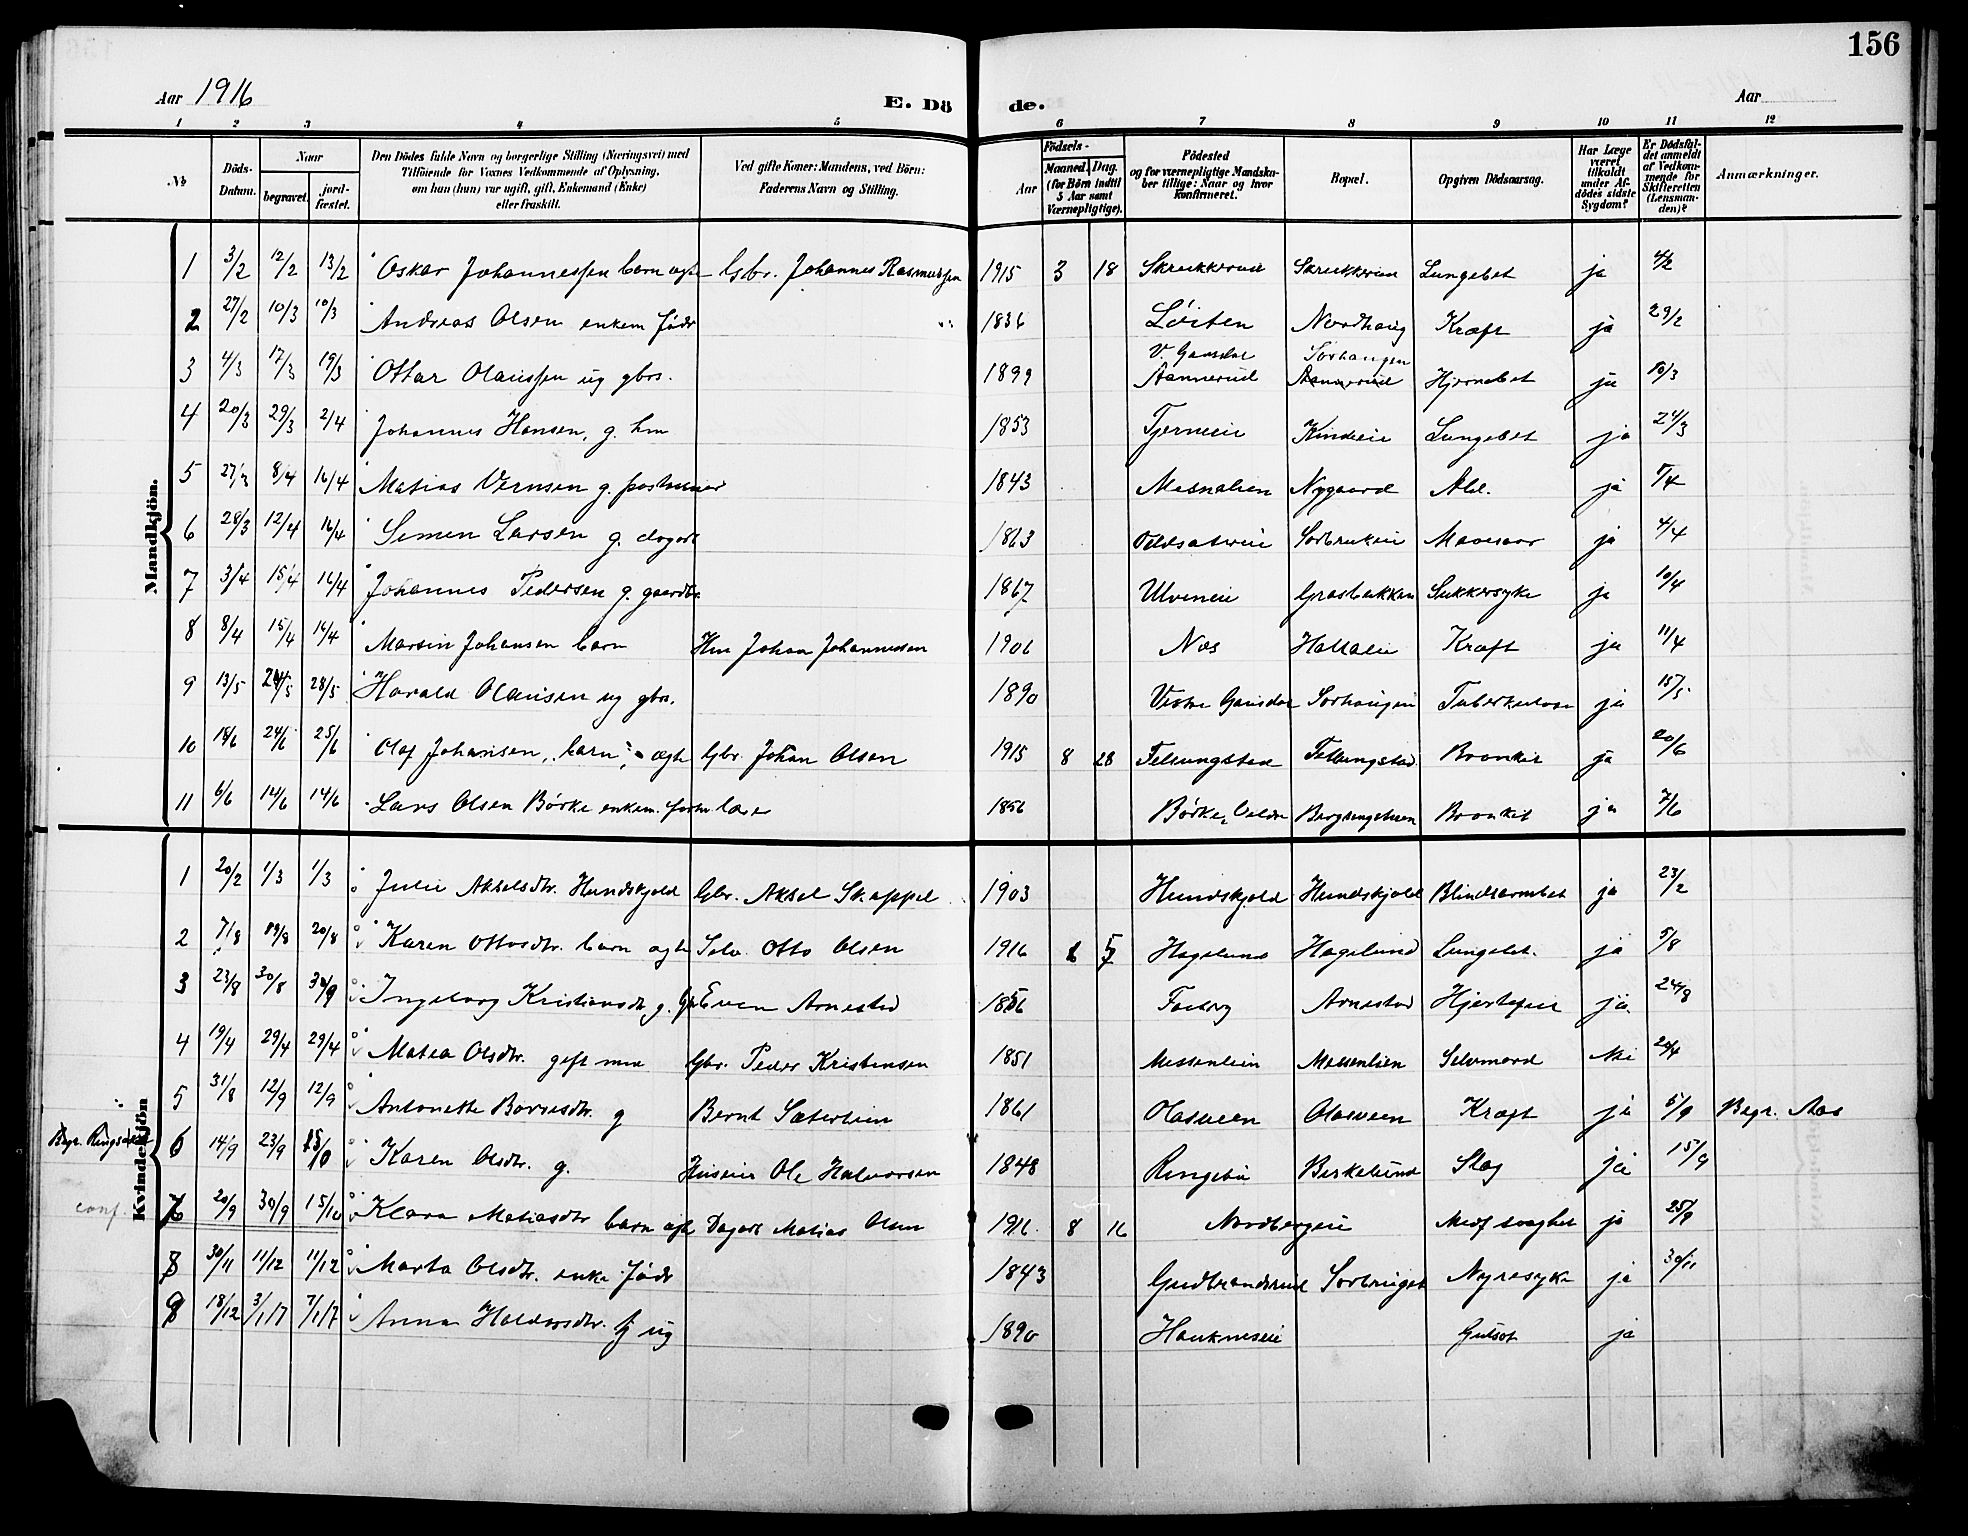 156
Aar 1916
E. Dö
de.
Aar
1 2 3 4 5 6 7 8 9 10 11 12
No
Döds-Datum.
Naar
begravet.
jord-fæstet.
Den Dödes fulde Navn og borgerlige Stilling (Næringsvei) med Tilföiende for Voxnes Vedkommende af Oplysning, om han (hun) var ugift, gift, Enkemand (Enke) eller fraskilt.
Ved gifte Koner: Mandens, ved Börn: Faderens Navn og Stilling.
Födsels-
Aar
Maaned. Dag.
(for Börn indtil 5 Aar samt Værnepligtige).
Födested og for værnepligtige Mandskaber tillige: Naar og hvor konfirmeret.
Bopæl.
Opgiven Dödsaarsag.
Har Læge været tilkaldt under Afdödes sidste Sygdom?
Er Dödsfaldet anmeldt af Vedkommende for Skifteretten (Lensmanden)?
Anmærkninger.
Mandkjön.
1 3/2 12/2 13/2 Oskar Johannessen barn ægte Gbr. Johannes Rasmussen 1915 3 18 Skrukkerud Skrukkerud Lungebet ja 4/2
2 27/2 10/3 10/3 Andreas Olsen enkem födr 1836 Löiten Nordhaug Kræft ja 29/2
3 4/3 17/3 19/3 Ottar Olaussen ug gbrs. 1899 V. Gausdal Aannerud Sorhaugen Aannerud Hjernebet ja 10/3
4 20/3 29/3 2/4 Johannes Hansen, g. hm 1853 Tjerneie Kindeie Lungebet ja 24/3
5 27/3 8/4 16/4 Matias Vernsen g. 1843 Mesnalien Nygaard Ald. ja 5/4
6 28/3 12/4 16/4 Simen Larsen g. dagarb 1863 Sorbrukeie Mavesaar ja 4/4
7 3/4 15/4 16/4 Johannes Pedersen g. gaardbr. 1867 Ulveneie Grasbakken Sukkersyke ja 10/4
8 8/4 15/4 16/4 Martin Johansen barn Hm Johan Johannessen 1906 Næs Hallaeie Kræft ja 11/4
9 13/5 24/5 28/5 Harald Olausen ug gbrs. 1890 Vestre Gausdal Sorhaugen Tuberkulose ja 15/5
10 18/6 24/6 25/6 Olaf Johansen, barn, ægte Gbr. Johan Olsen 1915 8 28 Fellungstad Fellungstad Bronkit ja 20/6
11 6/6 14/6 14/6 Lars Olsen Börke enkem. 1856 Börke, Veldre Bergsengstuen Bronkit ja 7/6
Kvindekjön
1 20/2 1/3 1/3 Julie Akselsdtr. Hundskjold Gbr. Aksel Skappel 1903 Hundskjold Hundskjold Blindtarmbet ja 23/2
2 7/8 19/8 20/8 Karen Ottosdtr. barn ægte Selv. Otto Olsen 1916 Hagelund Hagelund Lungebet. ja 5/8
3 23/8 30/8 Ingeborg Kristiansdtr g. Gbr Even Arnestad 1856 Faaberg Arnestad Hjertefeil ja 24/8
4 19/4 29/4 29/4 Matea Olsdtr. gift med Gbr. Peder Kristensen 1851 Messenlien Messenlien Selvmord Nei 20/4
5 31/8 12/9 12/9 Antonette Borresdtr. g Bernt Sæterlien 1861 Olasveen Olasveen Kræft ja 5/9 Begr. Aas
Begr. Ringsaker
6 14/9 23/9 15/10 Karen Olsdtr. g. Huseier Ole Halvorsen 1848 Ringebu Birkelund Slag ja 15/9
conf.
7 20/9 30/9 15/10 Klara Matiasdtr barn ægte Dagarb Matias Olsen 1916 8 16 Nordbergeie Medf svaghet ja 25/9
8 30/11 11/12 11/12 Marta Olsdtr. enke födr 1843 Gudbrandsrud Sorbruget Nyresyke ja 30/11
9 18/12 3/1/17 7/1/17 Anna Halvorsdtr. ug 1890 Haukneseie Gulsot ja